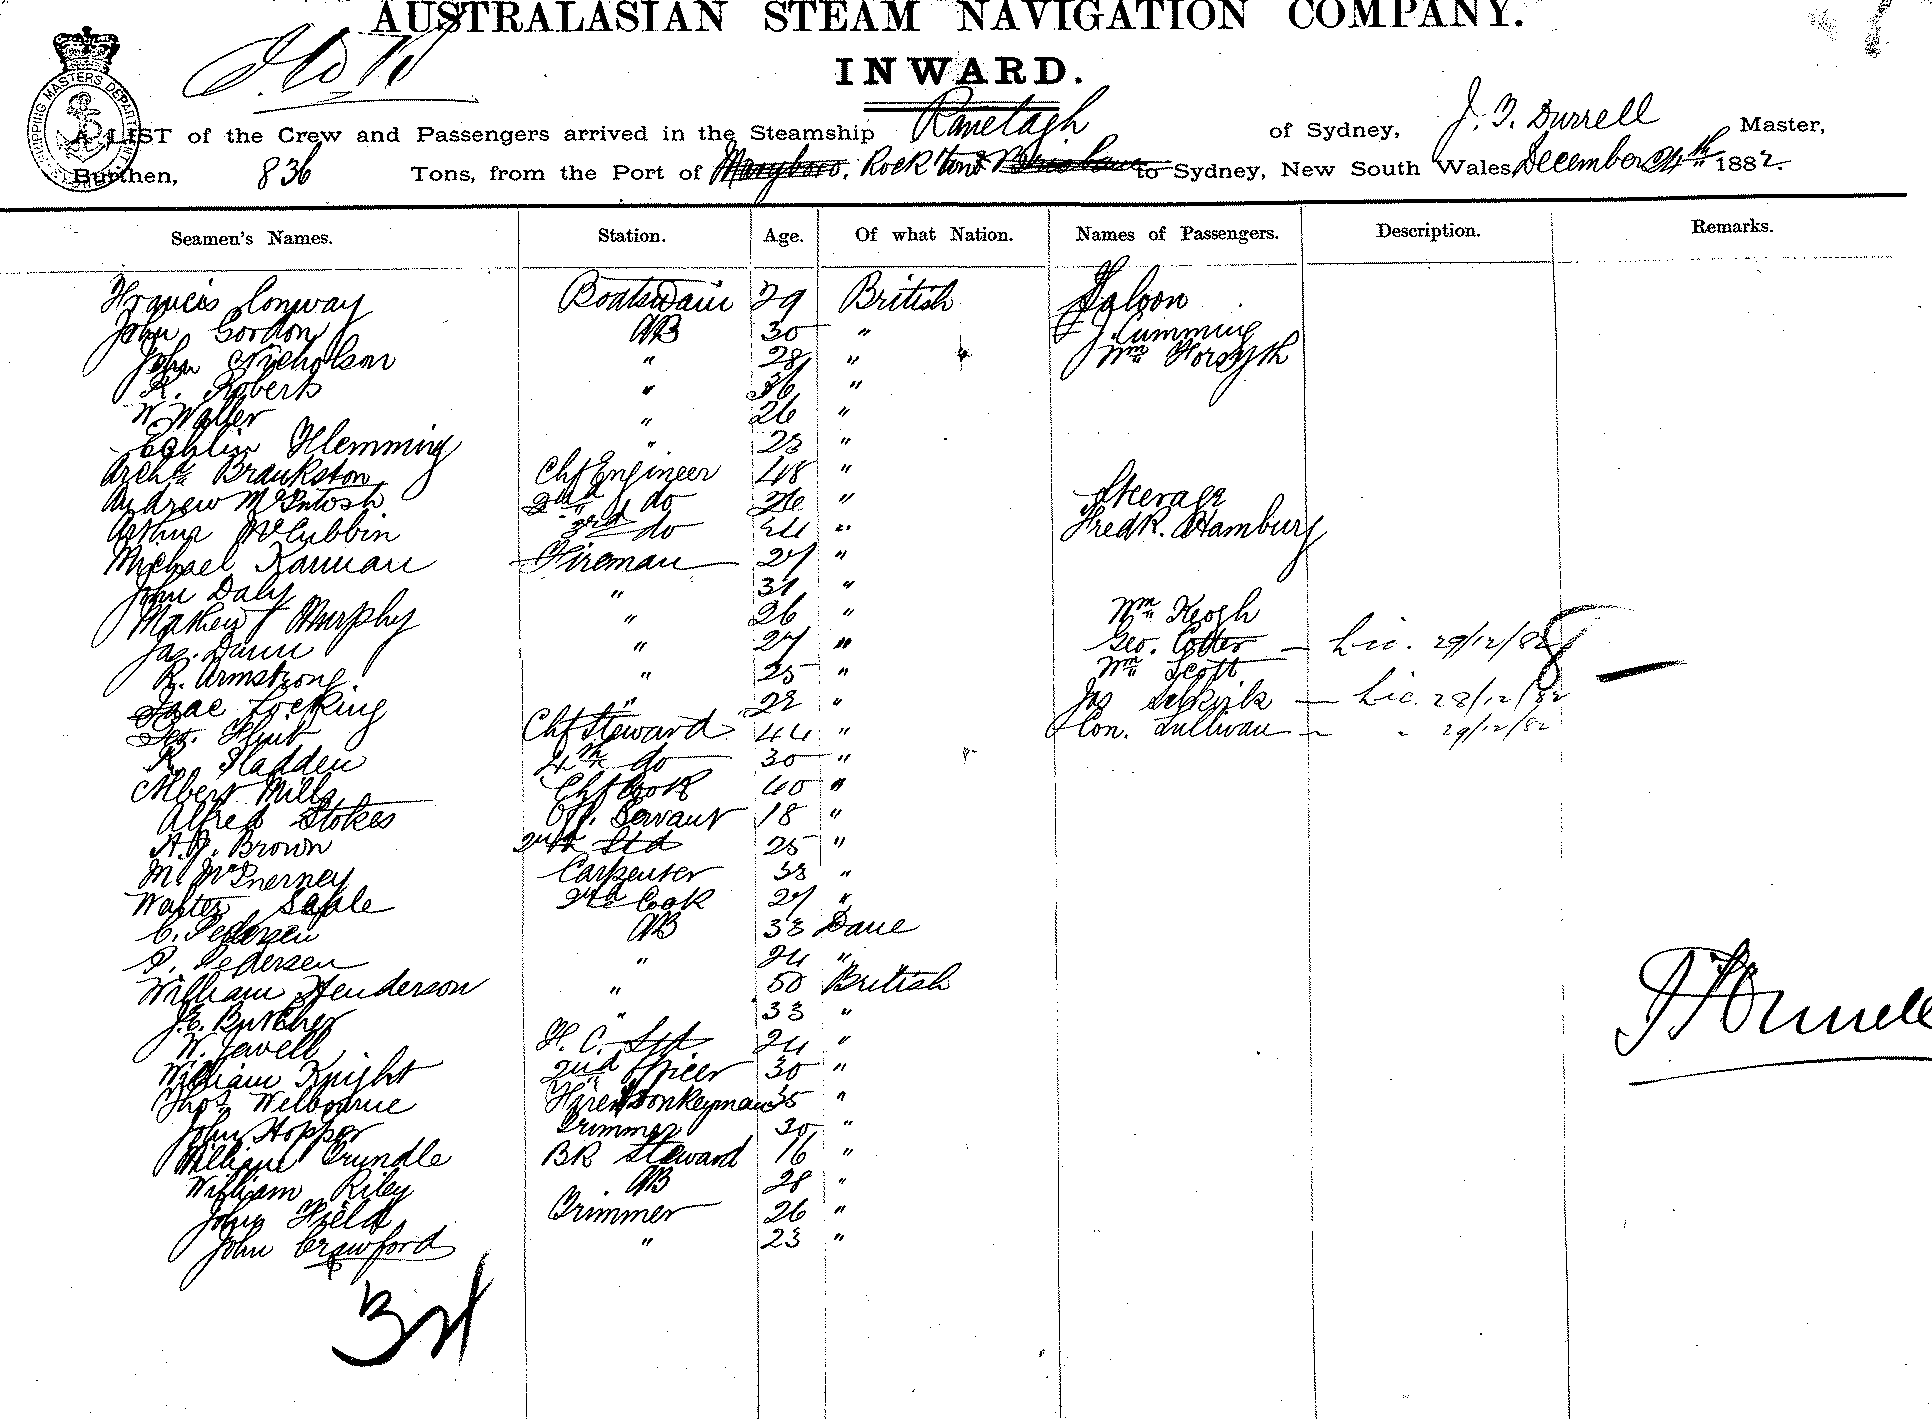 AUSTRALASIAN STEAM NAVIGATION COMPANY.
INWARD.
SHIPPING MASTERS DEPARTMENT
A LIST of the Crew and Passengers arrived in the Steamship Ranelagh of Sydney, J. F. Durrell Master,
Burthen, 836 Tons, from the Port of Maryboro. Rockton & Brisbane to Sydney, New South Wales, December 24th 1882.
Seamen's Names. Station. Age. Of what Nation. Names of Passengers. Description. Remarks.
Francis Conway Boatswain 29 British Saloon
John Gordon AB 30 " J Cumming
John Nicholson " 28 " Wm Forsyth
R. Roberts " 36 "
W. Waller " 26 "
Flemming " 23 "
Archd Braukston Chf Engineer 48 "
Andrew McIntosh 2nd do 26 " Steerage
Arthur McCubbin 3rd do 24 " Fredk. Hamburg
Michael Kannan Fireman 27 "
John Daly " 31 "
Mathew Murphy " 26 " Wm Keogh
Jas. Dunn " 27 " Geo. Cotter — Lic. 29/12/82
R. Armstrong " 25 " Wm Scott
Isaac Locking " 22 " Jas Selkirk — Lic. 28/12/82
Geo. Flint Chf Steward 44 " Con. Sullivan — " 29/12/82
R. Sladden 4th do 30 "
Albert Mills Chf Cook 40 "
Alfred Stokes Off. Servant 18 "
A.J. Brown 2nd Std 25 "
M. McInerney Carpenter 33 "
Walter Sable 2nd Cook 27 "
C. Pedersen AB 33 Dane
P. Pedersen " 24 "
William Henderson " 50 British
J.E. Butcher " 33 "
W. Jewell F. C. Std 24 "
William Knight 2nd Officer 30 "
Thos Welbourne Fireman Donkeyman 35 "
John Hopper Trimmer 30 "
William Trundle BR Steward 16 "
William Riley AB 28 "
John Field Trimmer 26 "
John Crawford " 23 "
34
J F Durrell